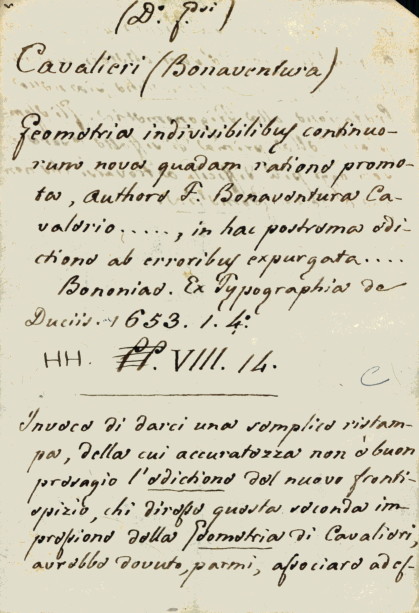 (D. f.)
Cavalieri (Bonaventura)
Geometria indivisibilibus continuo-
rum nova quadam ratione promo-
ta, Authore F. Bonaventura Ca-
valerio....., in hac postrema edi-
ctione ab erroribus expurgata....
Bononiae. Ex Typographia de
Duciis. 1653. 1. 4.º
HH. VIII. 14.
C
Invece di darci una semplice ristam-
pa, della cui accuratezza non è buon
presagio l'edictione del nuovo fronti-
spizio, chi diresse questa seconda im-
pressione della Geometria di Cavalieri,
avrebbe dovuto, parmi, associare ad es-